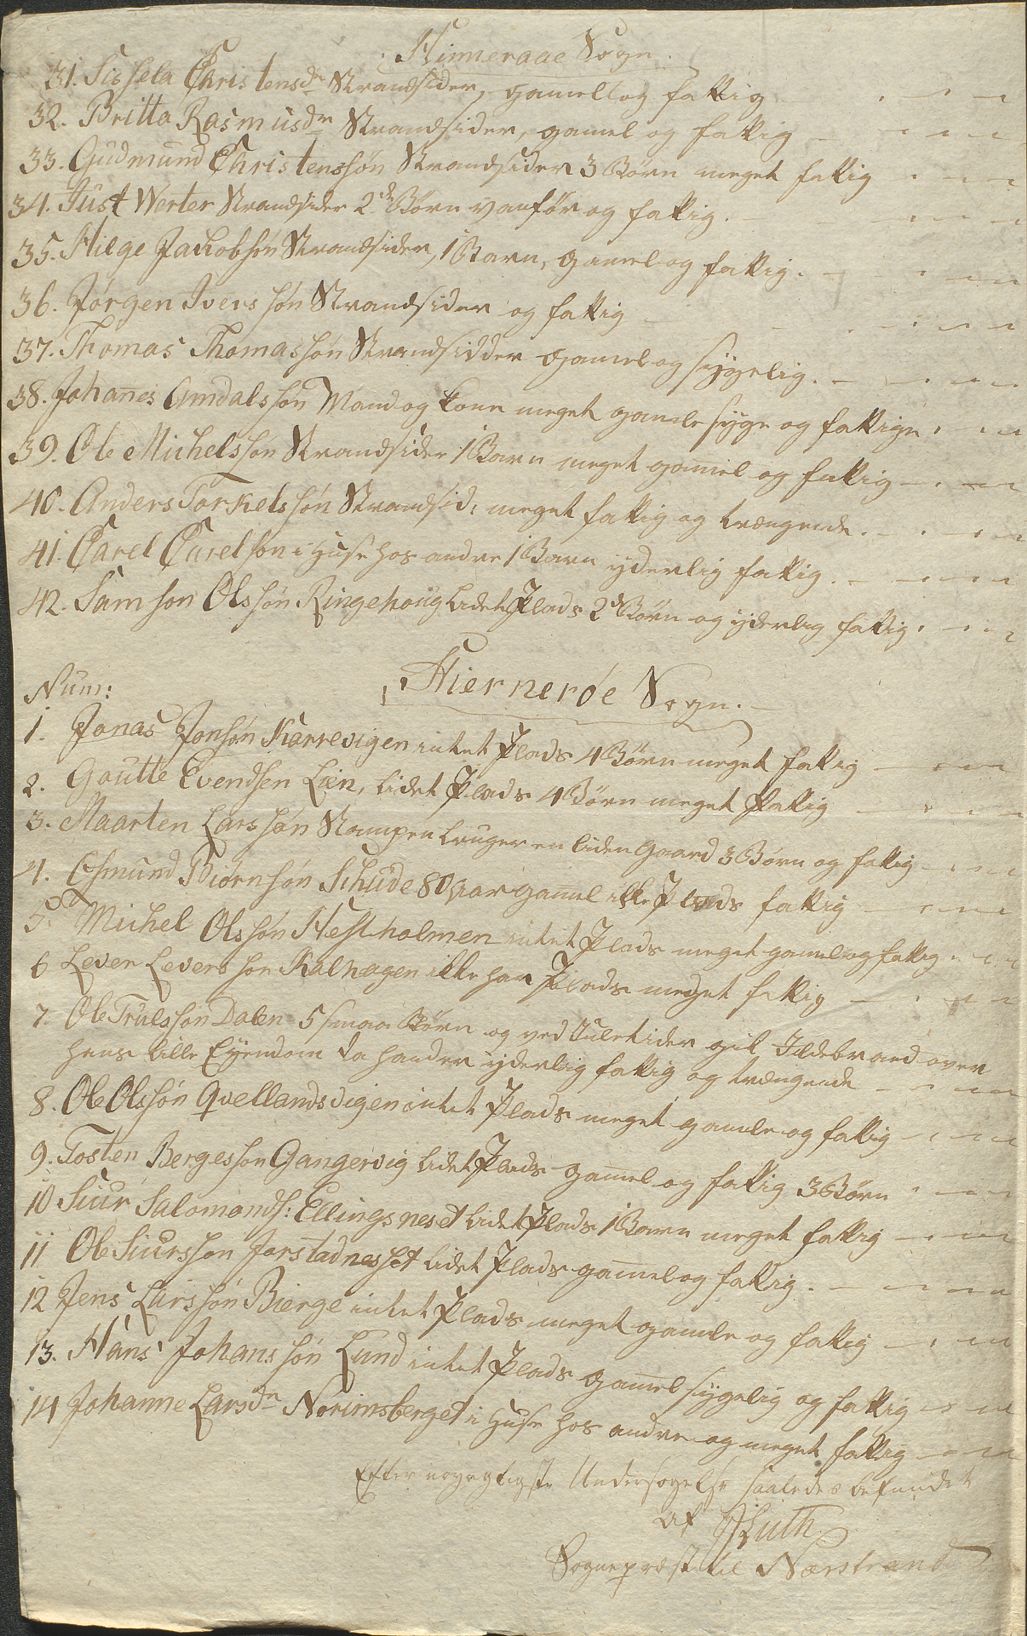 Hinneraae Sogn.
31. Sissela Christensdr Strandsider, gamel og fattig
32. Britta Rasmusdr Strandsider, gamel og fattig
33. Gudmund Christenssøn Strandsider 3 Børn meget fattig
34. Just Werter Strandsider 2de Børn vanfør og fattig.
35. Hilge Jackobsøn Strandsider, 1 Barn, gamel og fattig.
36. Jørgen Iverssøn Strandsider og fattig
37. Thomas Thomassøn Strandsidder gamel og sygelig.
38. Johanes Amdalssøn Mand og Kone meget gamle syge og fattige.
39. Ole Michelssøn Strandsider 1 Barn meget gamel og fattig
40. Anders Torkelssøn Strandsid: meget fattig og trængende.
41. Carel Carelsøn i Huse hos andre 1 Barn yderlig fattig.
42. Samson Olssøn Ringehoug lidet Plads 2de Børn og yderlig fattig.
Hiernerøe Sogn.
Num:
1. Jonas Jonsøn Karrevigen intet Plads 4 Børn meget fattig
2. Goutte Evendsen Lien, lidet Plads 4 Børn meget fattig
3. Maarten Larssøn Stampen bruger en liden Gaard 3 Børn og fattig
4. Osmund Biørnsøn Schude 80 aar gammel ikke Plads fattig
5. Michel Olssøn Hestholmen intet Plads meget gamel og fattig.
6 Lever Leverssøn Kalhagen ikke har Plads meget fattig
7. Ole Trulssøn Dalen 5 smaa Børn og ved Juletider gik Ildebrand over
hans lille Eyendom da hand er yderlig fattig og trængende
8. Ole Olssøn Qvellandsvigen intet Plads meget gamle og fattig
9. Tosten Bergesson Gangervig lidet Plads gamel og fattig 3 Børn
10 Siur Salomonds: Ellingsneset lidet Plads 1 Barn meget fattig
11 Ole Siurssøn Jorstadnesset lidet Plads gamel og fattig.
12 Jens Larssøn Bierge intet Plads meget gamle og fattig
13. Hans Johanssøn Lund intet Plads gamel sygelig og fattig
14 Johanne Larsdr Norimsberget i Huse hos andre og meget fattig
Efter nøyagtigste Undersøgelse saaledes befundet
af Luth
Sognepræst til Nærstrand